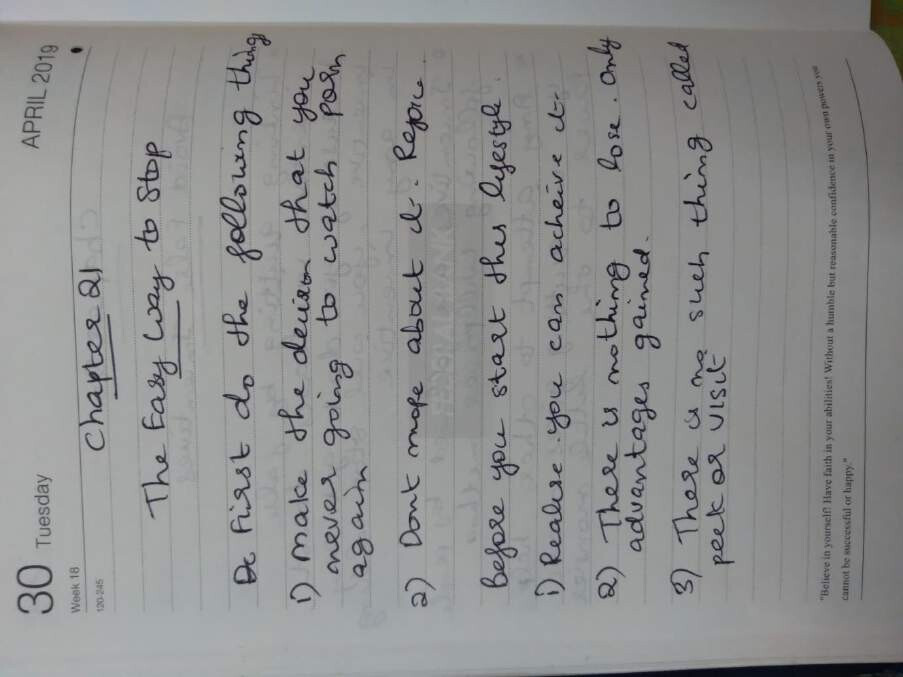 30 Tuesday
APRIL 2019
Week 18
120-245
Chapter 21
The Easy Way to Stop
De First do the following thing
1) Make the decision that you
never going to watch porn
again
2) Dont mope about it. Rejoice.
Before you start this lifestyle.
1) Realise you can acheive it.
2) There is nothing to lose. Only
advantages gained.
3) There is no such thing called
peek or visit
"Believe in yourself! Have faith in your abilities! Without a humble but reasonable confidence in your own powers you
cannot be successful or happy."